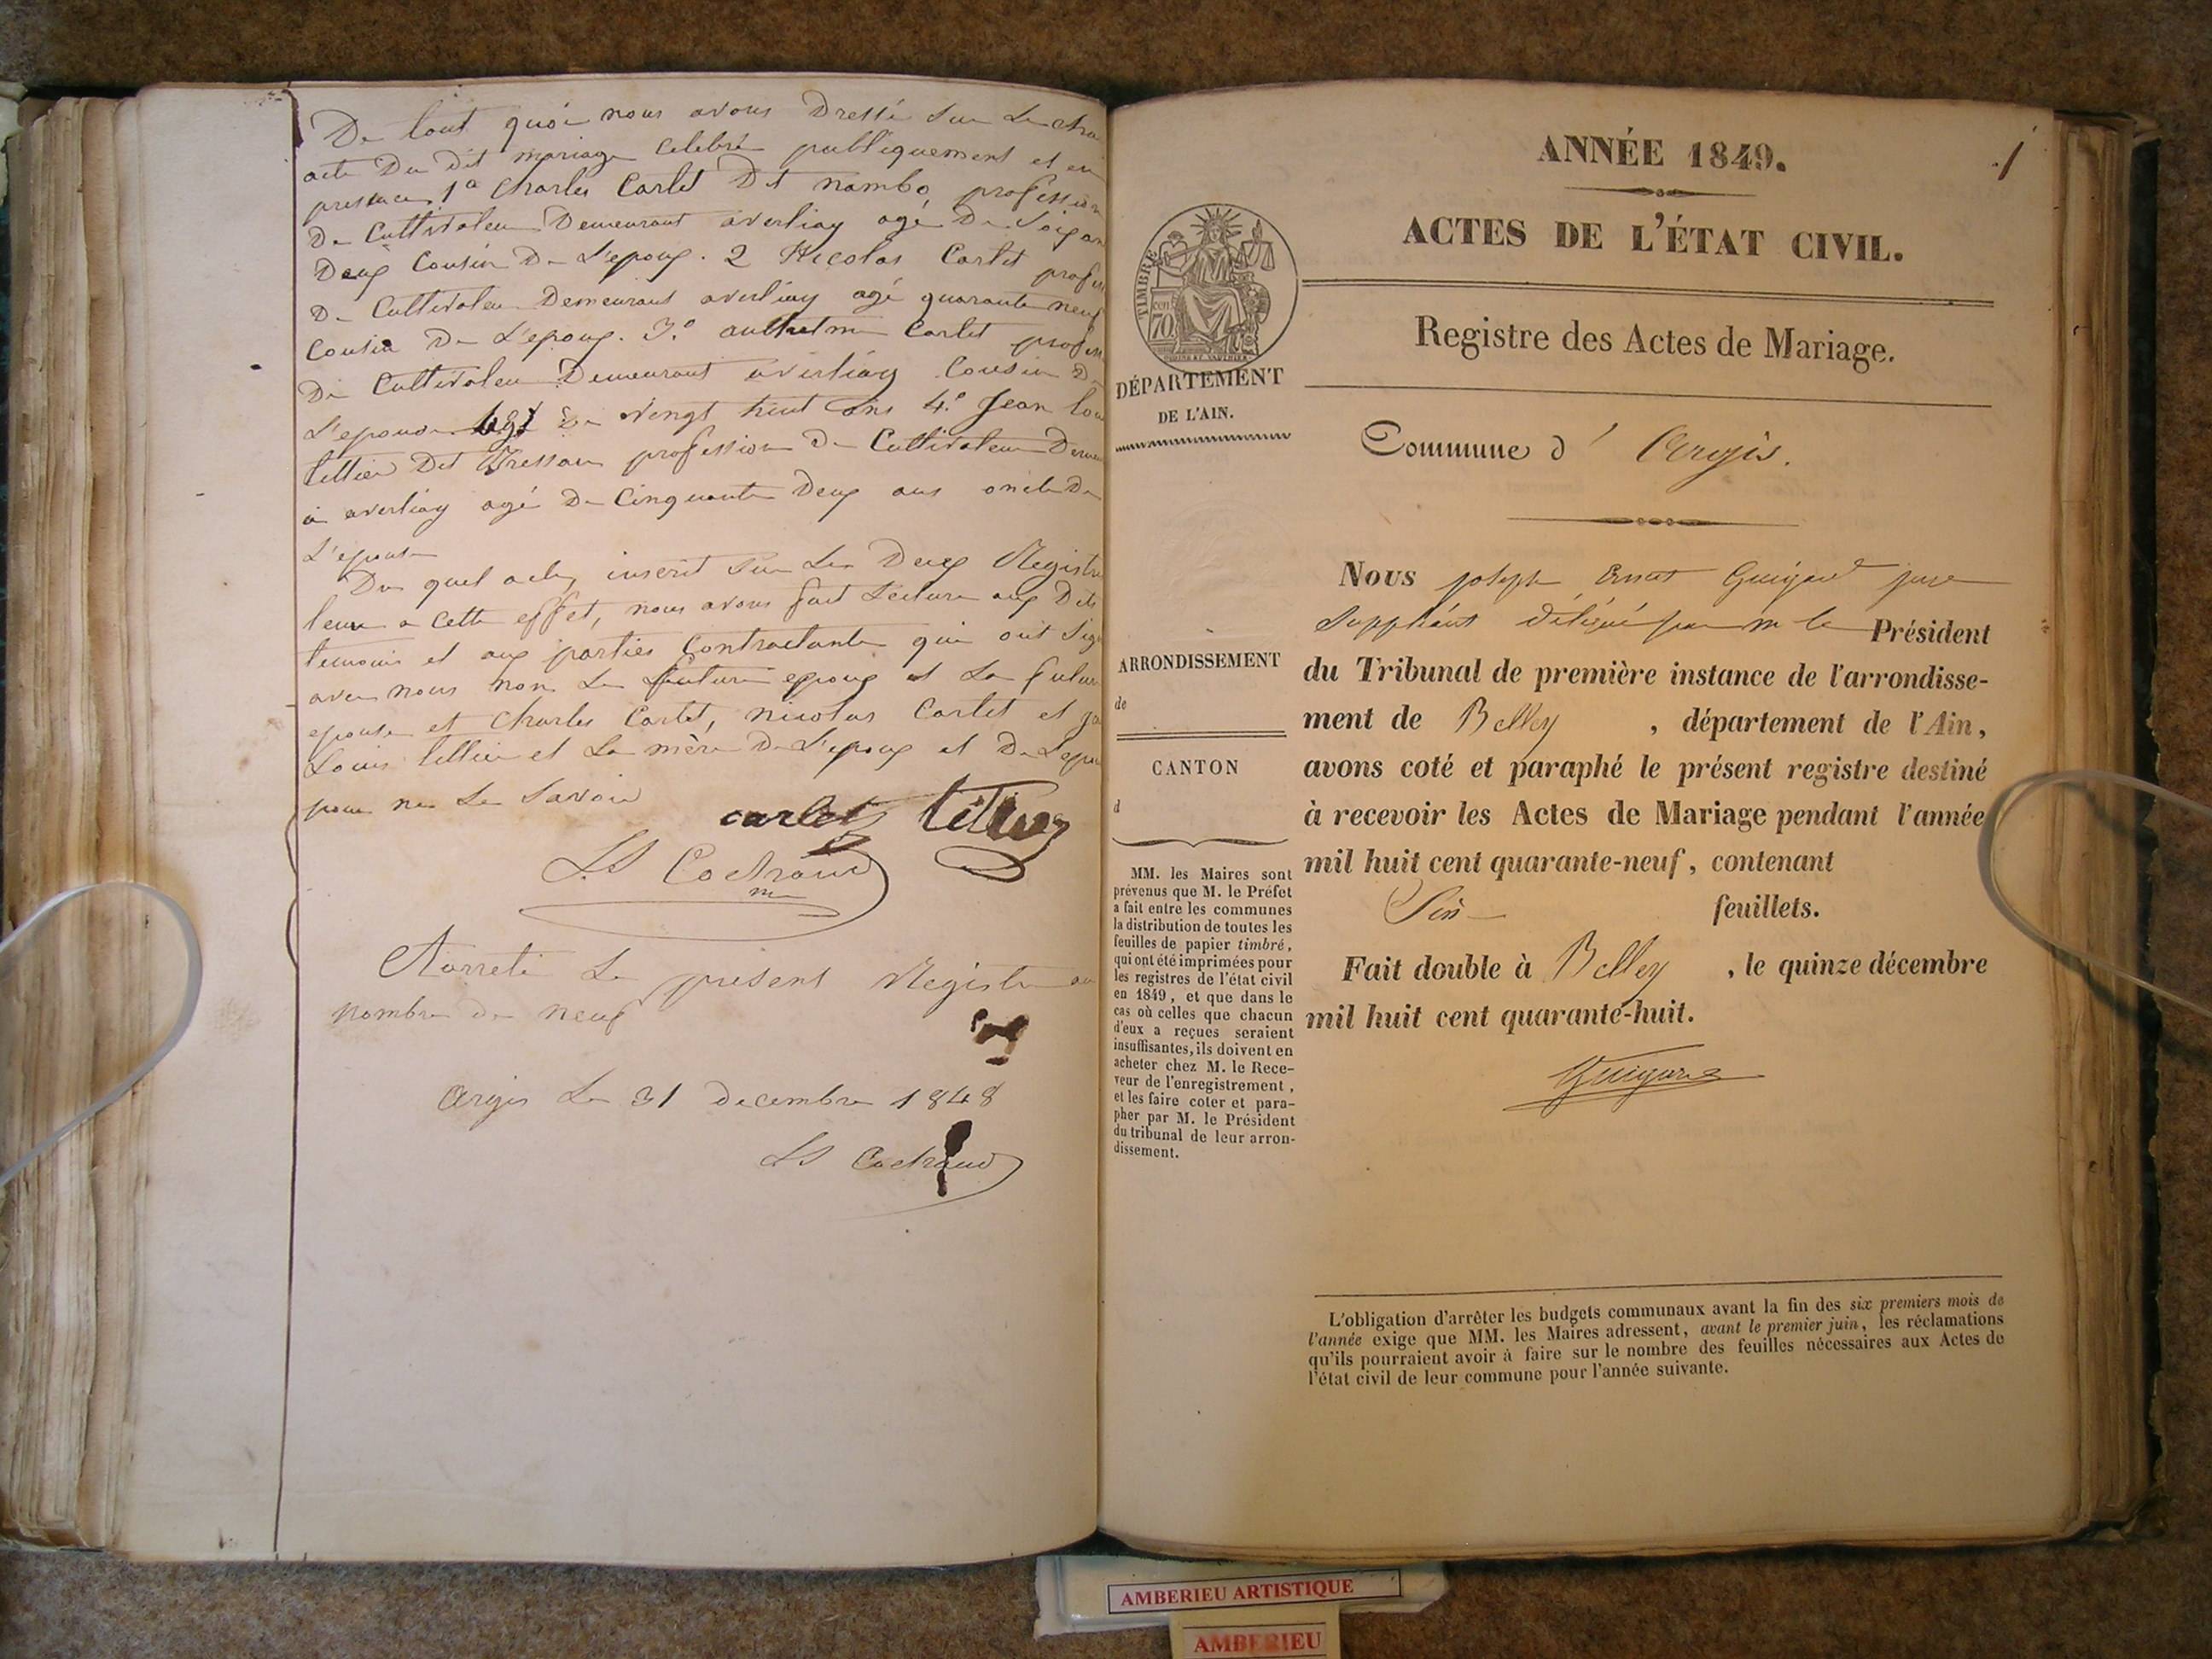 De tout quoi nous avons Dressé Sur Le cha
acte Du dit mariage Celebré publiquement et en
presence 1° Charles Carlet Dit nambo profession
De Cultivateur Demeurant
Deux Cousin De L'epoux. 2 Nicolas Carlet profess
De Cultivateur Demeurant agé quarante neuf
Cousin De L'epoux. 3° Carlet profess
De Cultivateur Demeurant Cousin De
L'epouse agé De vingt huit ans 4° Jean Lou
tettier Dit profession De Cultivateur Demeu
a agé De Cinquante Deux ans oncle De
L'epouse
Du quel acte, inscrit Sur Les Deux Registre
tenu a Cette effet, nous avons fait Lecture aux Dits
temoins et aux parties Contractante qui ont Sign
avec nous non Le future epoux et La future
epouse et Charles Carlet, nicolas Carlet et
Louis tettier et La mère De L'epoux et De Lepou
pour ne Le Savoir
carlet tettier
LS Cochaud
m
Arreté Le présent Registre au
nombre de neuf
Argis Le 31 decembre 1848
LS Cochaud
1
ANNÉE 1849.
ACTES DE L'ÉTAT CIVIL.
Registre des Actes de Mariage.
Commune d' Argis.
TIMBRE
cen
70
DÉPARTEMENT
DE L'AIN.
ARRONDISSEMENT
de
CANTON
d
MM. les Maires sont
prévenus que M. le Préfet
a fait entre les communes
la distribution de toutes les
feuilles de papier timbré,
qui ont été imprimées pour
les registres de l'état civil
en 1849, et que dans le
cas où celles que chacun
d'eux a reçues seraient
insuffisantes, ils doivent en
acheter chez M. le Rece-
veur de l'enregistrement,
et les faire coter et para-
pher par M. le Président
du tribunal de leur arron-
dissement.
Nous joseph Ernest Guigard juge
Suppléant délégué par m le Président
du Tribunal de première instance de l'arrondisse-
ment de Belley , département de l'Ain,
avons coté et paraphé le présent registre destiné
à recevoir les Actes de Mariage pendant l'année
mil huit cent quarante-neuf, contenant
Six feuillets.
Fait double à Belley , le quinze décembre
mil huit cent quarante-huit.
Guigard
L'obligation d'arrêter les budgets communaux avant la fin des six premiers mois de
l'année exige que MM. les Maires adressent, avant le premier juin, les réclamations
qu'ils pourraient avoir à faire sur le nombre des feuilles nécessaires aux Actes de
l'état civil de leur commune pour l'année suivante.
AMBERIEU ARTISTIQUE
AMBERIEU